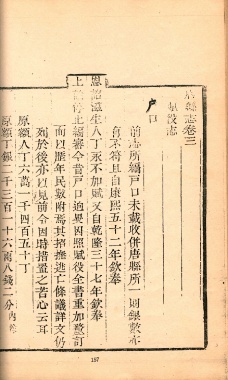 唐縣志卷三
賦役志
户口
前志所編戸口未載收併唐縣所一則銀數亦
有不符且自康熙五十二年欽奉
恩詔滋生人丁永不加賦又自乾隆三十七年欽奉
上諭停止編審今昔戸口迥異因照賦役全書重加登訂
而以歷年民數附焉其招撫逃亡條議詳文仍
列於後亦以見前令因時措置之苦心云耳
原額人丁六萬一千四百五十丁
原額丁銀二千三百一十六兩八錢二分內
187